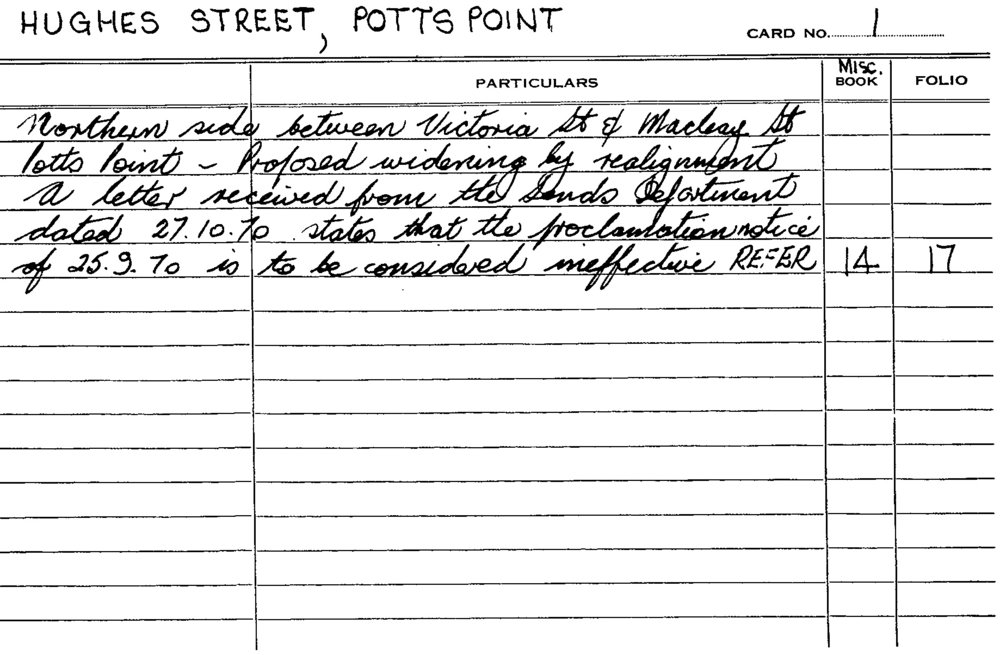 HUGHES STREET, POTTS POINT
CARD NO. 1
PARTICULARS MISC. BOOK FOLIO
Northern side between Victoria St & Macleay St
Potts Point - Proposed widening by realignment
A letter received from the Lands Department
dated 27.10.70 states that the proclamation notice
of 25.9.70 is to be considered ineffective REFER 14 17